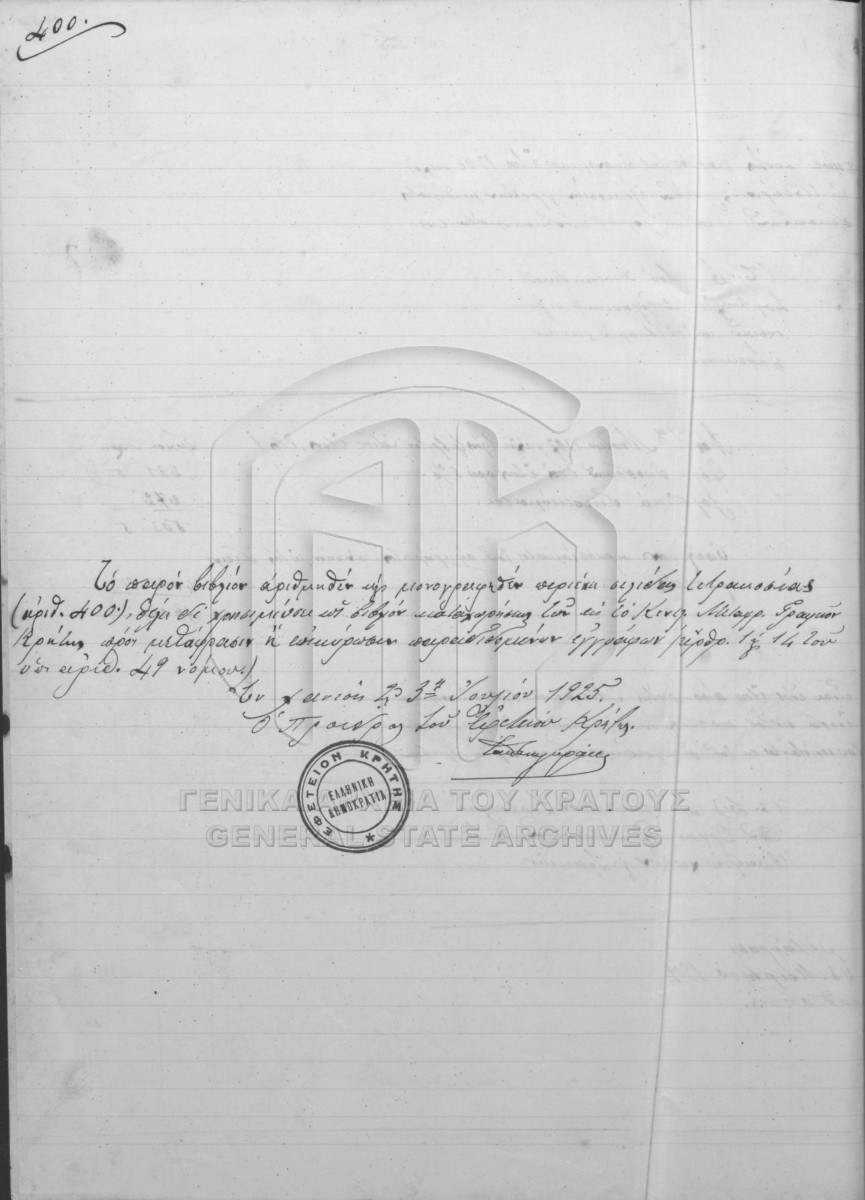 400.
Τό παρόν βιβλίον ἀριθμηθέν καί μονογραφηθέν περιέχει σελίδας τετρακοσίας
(ἀριθ. 400), θέλει δέ χρησιμεύσει ὡς βιβλίον καταχωρήσεως τῶν εἰς τό Κεντρ. Μεταφρ. Γραφεῖον
Κρήτης πρός μετάφρασιν ἤ ἐπικύρωσιν παρουσιαζομένων ἐγγράφων (ἄρθρ. 14 τοῦ
ὑπ' ἀριθ. 49 νόμου)
Ἐν Χανίοις τῇ 3ῃ Ἰουλίου 1925.
Ὁ Πρόεδρος τοῦ Ἐφετείου Κρήτης.
ΕΦΕΤΕΙΟΝ ΚΡΗΤΗΣ
ΕΛΛΗΝΙΚΗ
ΔΗΜΟΚΡΑΤΙΑ
ΓΕΝΙΚΑ ΑΡΧΕΙΑ ΤΟΥ ΚΡΑΤΟΥΣ
GENERAL STATE ARCHIVES